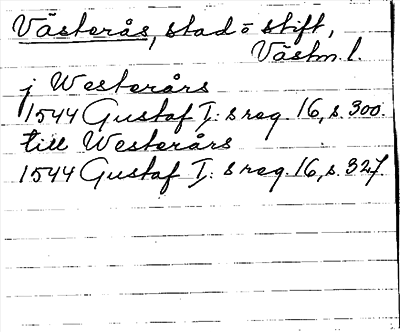 Västerås, stad o stift,
Västm. l.
j Westerårs
1544 Gustaf I:s reg. 16, s. 300.
till Westerårs
1544 Gustaf I:s reg. 16, s. 327.